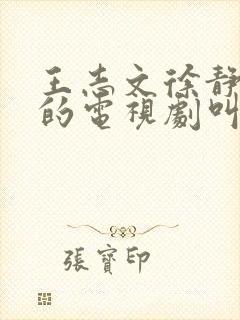 王志文徐静
的電視劇叫
張寶印